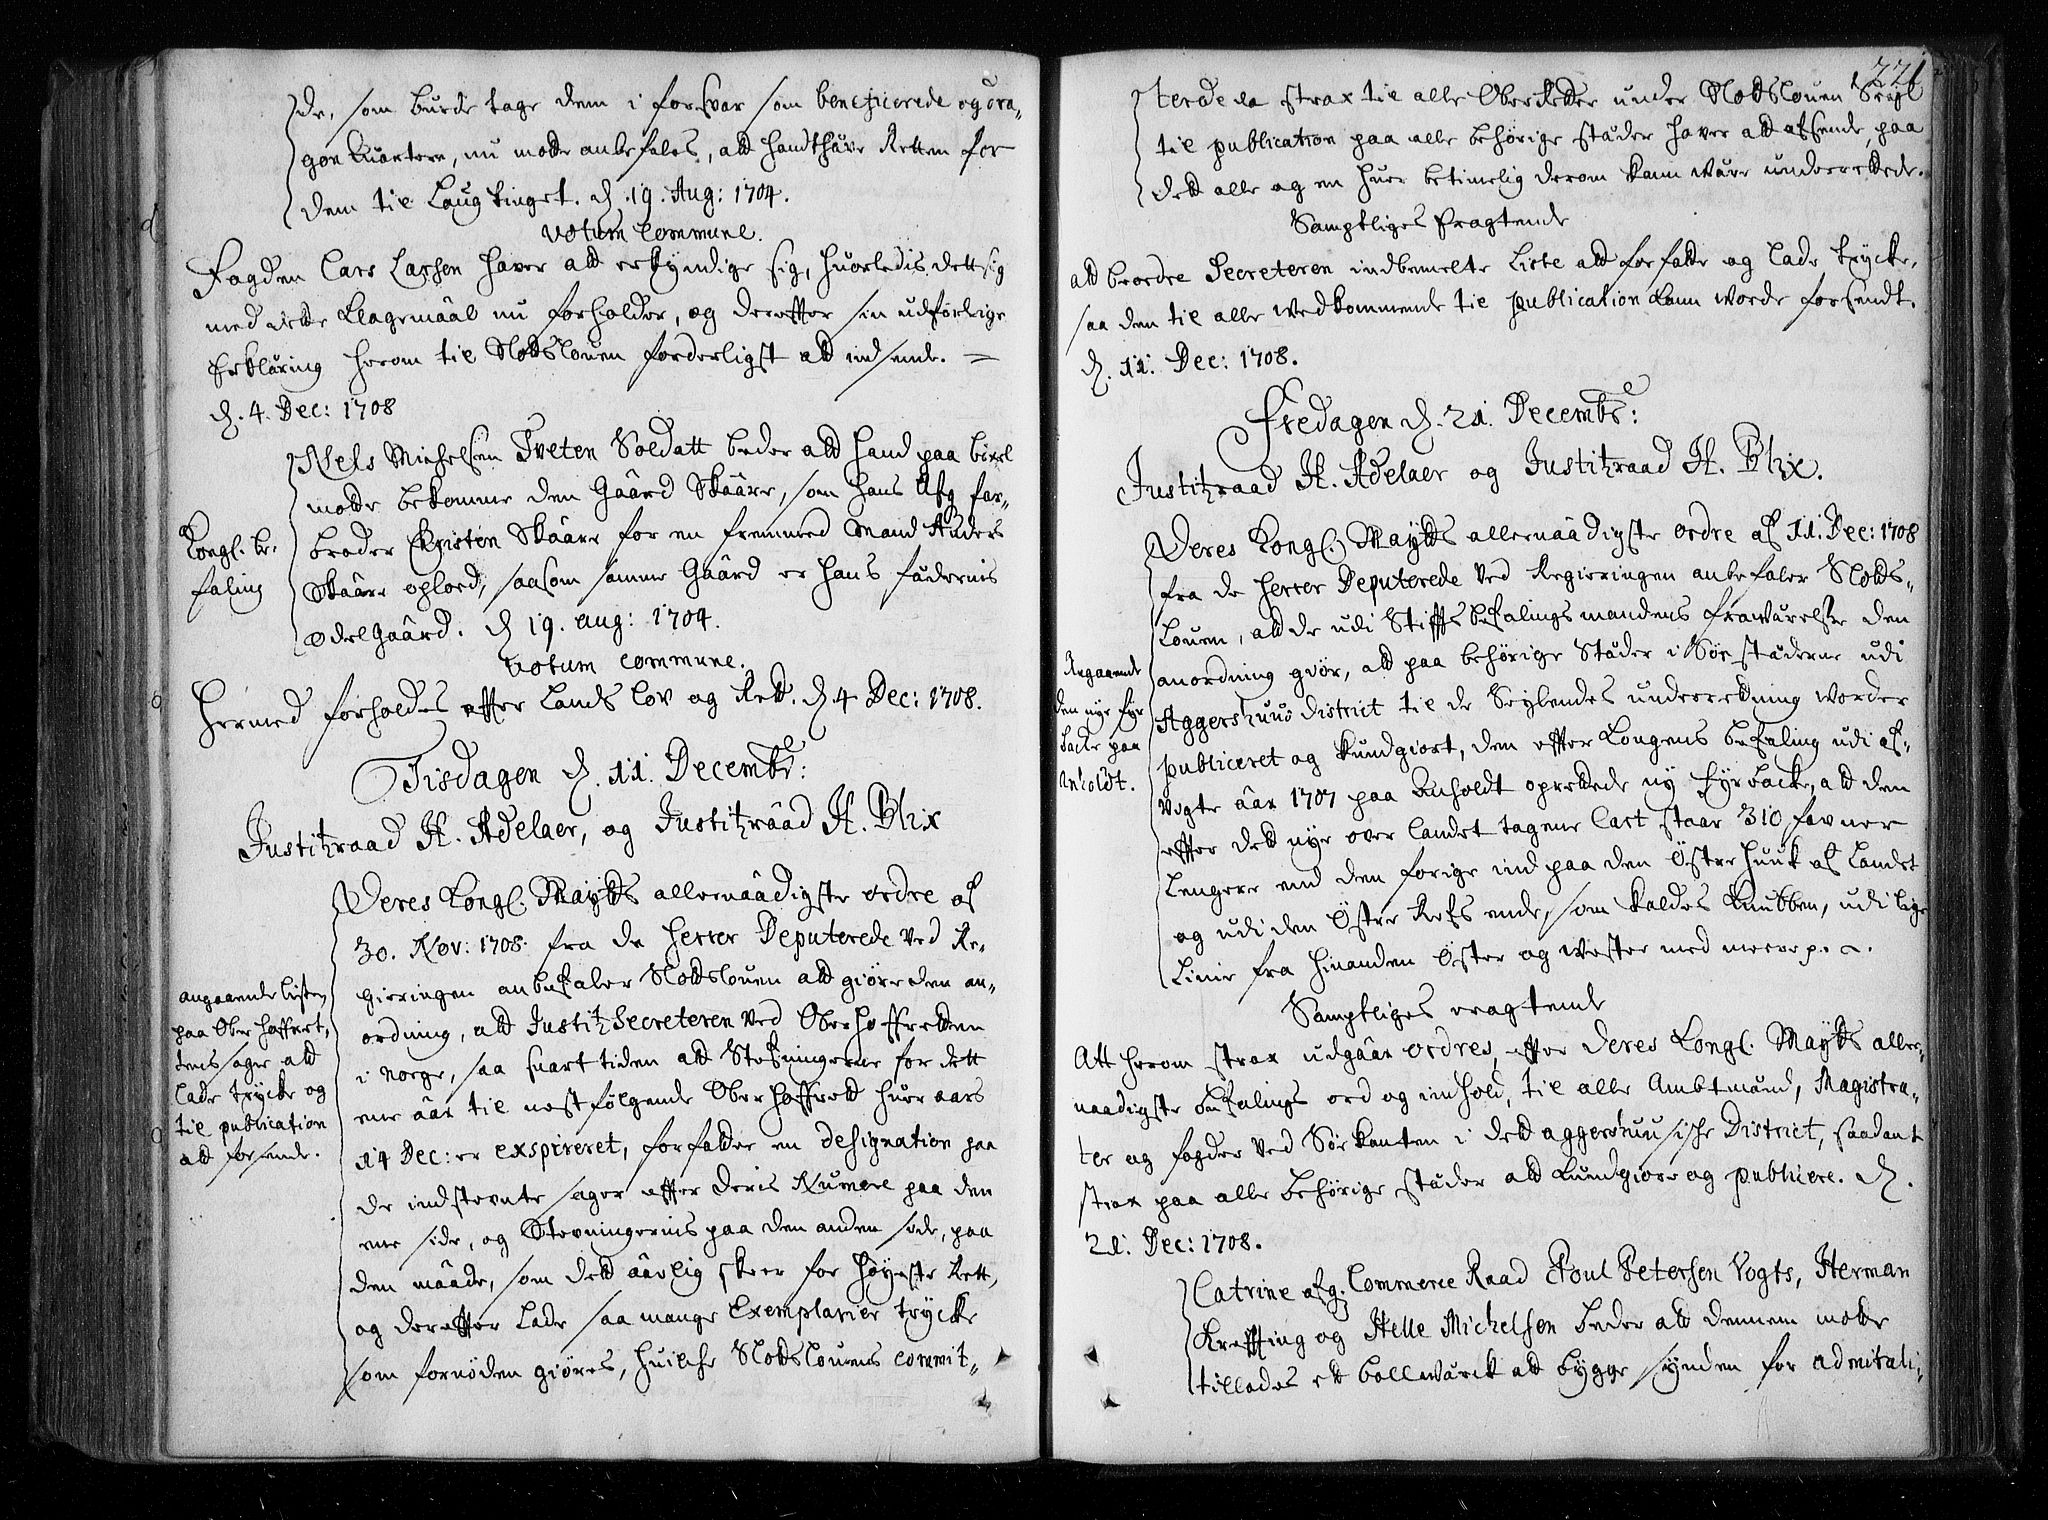 de, som burde tage dem i forsvar som beneficerede og dra-
gon quartere, nu motte anbefales, att handthäve Retten for
dem til Laugtinget. d. 19. Aug: 1704.
Votum Commune.
Fogden Lars Larsen haver att erkyndige sig, huorledis dett sig
med dette Klagemäâl nu forholder, og dereffter sin udförlige
Erklæring herom til Slottslouen forderligst att indsende. =
d. 4. Dec: 1708
Niels Michelsen Tveten Soldatt beder att hand paa bixel
motte bekomme den Gaârd Skaâre, som hans Afg far-
broder Christen Skaâre for en fremmed Mand Anders
Skaâre oplod, saasom samme Gaârd er hans fäderniis
Odelgaârd. d 19. aug: 1704.
Kongl. be-
faling
Votum Commune.
Hermed forholdes effter Lands lov og Rett. d 4 Dec: 1708.
Tisdagen d. 11. Decembr:
Justitzraad H. Adelaer, og Justitzrâad H. Blix
Deres Kongl. Maytts allernâadigste ordre af
30. Nov: 1708. fra de Herrer Deputerede ved Re-
gieringen anbefaler Slottslouen att giöre den an-
ordning, att Justitz Secreteren ved Oberhoffretten
i Norge, saa snart tiden att Stefningerne for dett
ene âar til nest fölgende Oberhoffrett huer aars
14 Dec: er exspireret, forfatter en designation paa
de indstevnte sager effter deris Numere paa den
ene side, og Stevningernis paa den anden side, paa
den mâade, som dett âarlig skeer for Höyeste Rett,
og dereffter lade saa mange Exemplarier trycke
som fornöden giöres, huilche Slottslouens commit-
angaaende listen
paa Ober hoffrett,
tens sager att
lade trycke og
til publication
att forsende.
221
terede da strax til alle Oberretter under Slottslouen
til publication paa alle behörige städer haver att afsende, paa
dett alle og en huer betimelig derom kan være underrettede.
Samptliges Eragtende
att beordre Secreteren indbemelte Liste att forfatte og lade trycke,
saa den til alle vedkommende til publication kan worde forsendt.
d. 11. Dec: 1708.
Fredagen d. 21. Decembr:
Justitzraad H. Adelaer og Justitzraad H. Blix.
Deres Kongl. Maytts allernâadigste ordre af 11. Dec: 1708
fra de Herrer Deputerede ved Regieringen anbefaler Slotts-
Louen, att de udi Stiffts Befalingsmandens frawärelse den
anordning giör, att paa behörige Städer i Söe städerne udi
Aggershuus District til de Seylendes underretning worder
publiceret og Kundgiort, den effter Kongens befaling udi af-
vigte âar 1707 paa Anholdt oprettede ny Fyrbacke, att den
effter dett nye over landet tagene Cart staar 310 favner
lengere end den forige ind paa den Östre huuk af Landet
og udi den Östre Refs ende, som kaldes Knubben, udi lige
Linie fra hinanden Öster og Wester med meere p. c.
Angaaende
den nye Fyr
backe paa
Anholdt.
Samptliges eragtende
Att herom strax udgâar ordres, effter Deres Kongl. Maytts aller-
naadigste befalings ord og indhold, til alle Ambtmänd, Magistra-
ter og fogder ved Söekanten i dett aggershuusische District, saadant
strax paa alle behörige städer att Kundgiöre og publicere. d.
21. Dec: 1708.
Catrine afg. Commerce Raad Poul Petersen Vogts, Herman
Krefting og Helle Michelsen beder att dennem motte
tillades ett bollwärck att bygge synden for admirali-